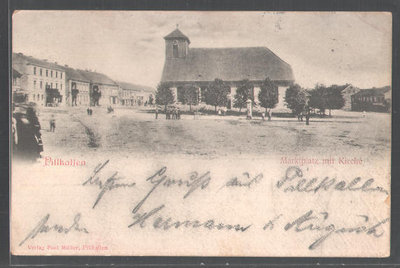 Pillkallen
Marktplatz mit Kirche
besten Gruß aus Pillkallen
senden Hermann & August
Verlag Paul Müller, Pillkallen